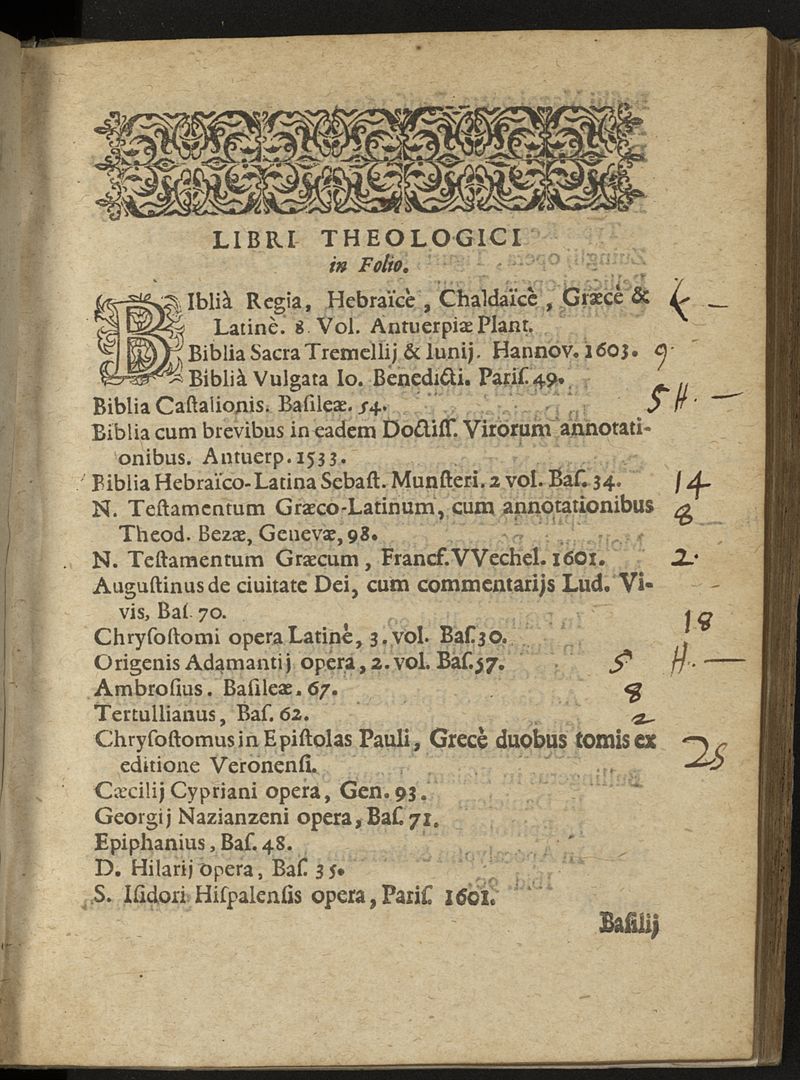 LIBRI THEOLOGICI
in Folio.
BIblià Regia, Hebraïcè, Chaldaïcè, Græcè &
Latinè. 8. Vol. Antuerpiæ Plant.
Biblia Sacra Tremellij & Iunij. Hannov. 1603. 9
Biblià Vulgata Io. Benedicti. Pariſ. 49.
Biblia Caſtalionis. Baſileæ. 54. 5 H. —
Biblia cum brevibus in eadem Doctiſſ. Virorum annotati-
onibus. Antuerp. 1533.
Biblia Hebraïco-Latina Sebaſt. Munſteri. 2 vol. Baſ. 34. 14
N. Teſtamentum Græco-Latinum, cum annotationibus 8
Theod. Bezæ, Genevæ, 98.
N. Teſtamentum Græcum, Francf. VVechel. 1601. 2.
Auguſtinus de ciuitate Dei, cum commentarijs Lud. Vi-
vis, Baſ. 70.
Chryſoſtomi opera Latinè, 3. vol. Baſ. 30. 18
Origenis Adamantij opera, 2. vol. Baſ. 57. 5 H. —
Ambroſius. Baſileæ. 67. 8
Tertullianus, Baſ. 62. 2
Chryſoſtomus in Epiſtolas Pauli, Grecè duobus tomis ex 25
editione Veronenſi.
Cæcilij Cypriani opera, Gen. 93.
Georgij Nazianzeni opera, Baſ. 71.
Epiphanius, Baſ. 48.
D. Hilarij opera, Baſ. 35.
S. Iſidori Hiſpalenſis opera, Pariſ. 1601.
Baſilij